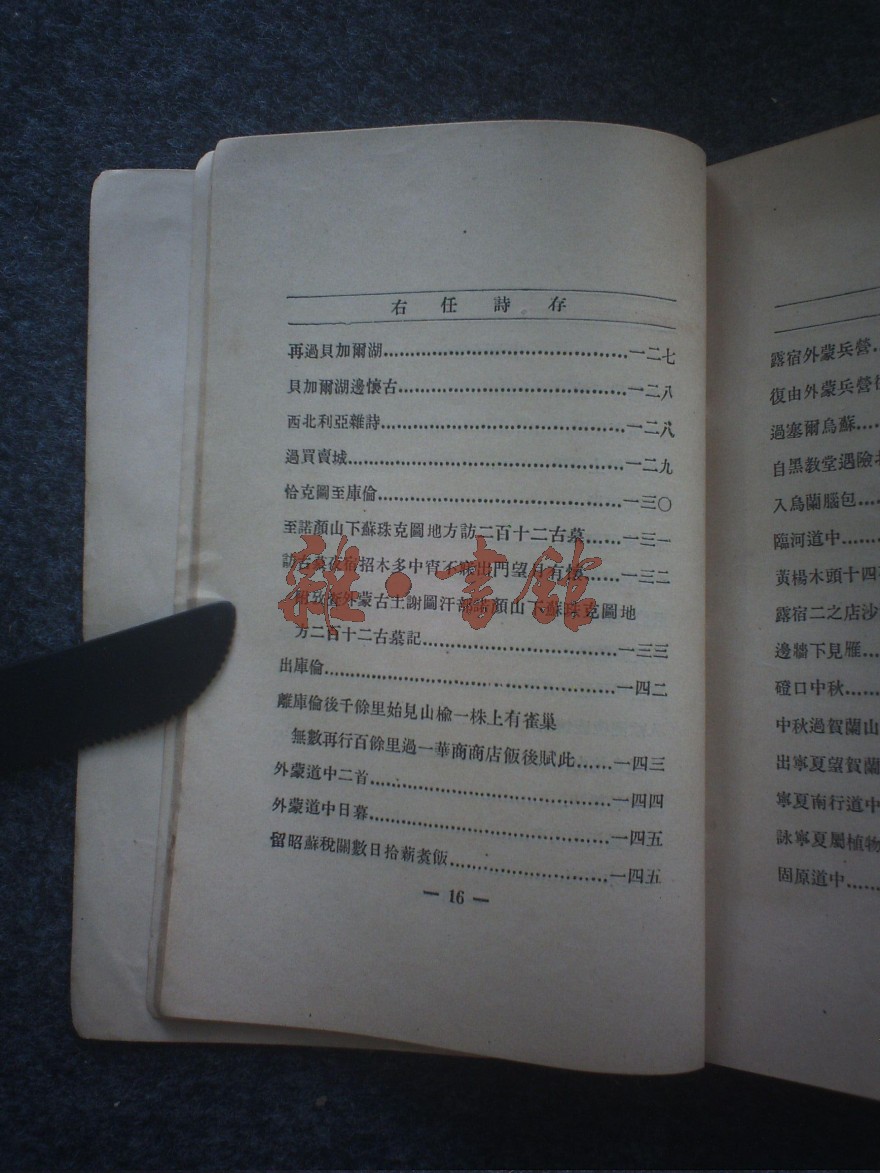 右任詩存
再過貝加爾湖……一二七
貝加爾湖邊懷古……一二八
西北利亞雜詩……一二八
過買賣城……一二九
恰克圖至庫倫……一三〇
至諾顏山下蘇珠克圖地方訪二百十二古墓……一三一
訪古墓夜宿招木多中宵不寐出門望月有懷……一三二
附致查外蒙古土謝圖汗部諾顏山下蘇珠克圖地
方二百十二古墓記……一三三
出庫倫……一四二
離庫倫後千餘里始見山榆一株上有雀巢
無數再行百餘里過一華商商店飯後賦此……一四三
外蒙道中二首……一四四
外蒙道中日暮……一四五
留昭蘇稅關數日拾薪煑飯……一四五
— 16 —
雜·書館
露宿外蒙兵營
復由外蒙兵營
過塞爾烏蘇
自黑教堂遇險
入烏蘭腦包
臨河道中
黃楊木頭十四
露宿二之店沙
邊牆下見雁
磴口中秋
中秋過賀蘭山
出寧夏望賀蘭
寧夏南行道中
詠寧夏屬植物
固原道中